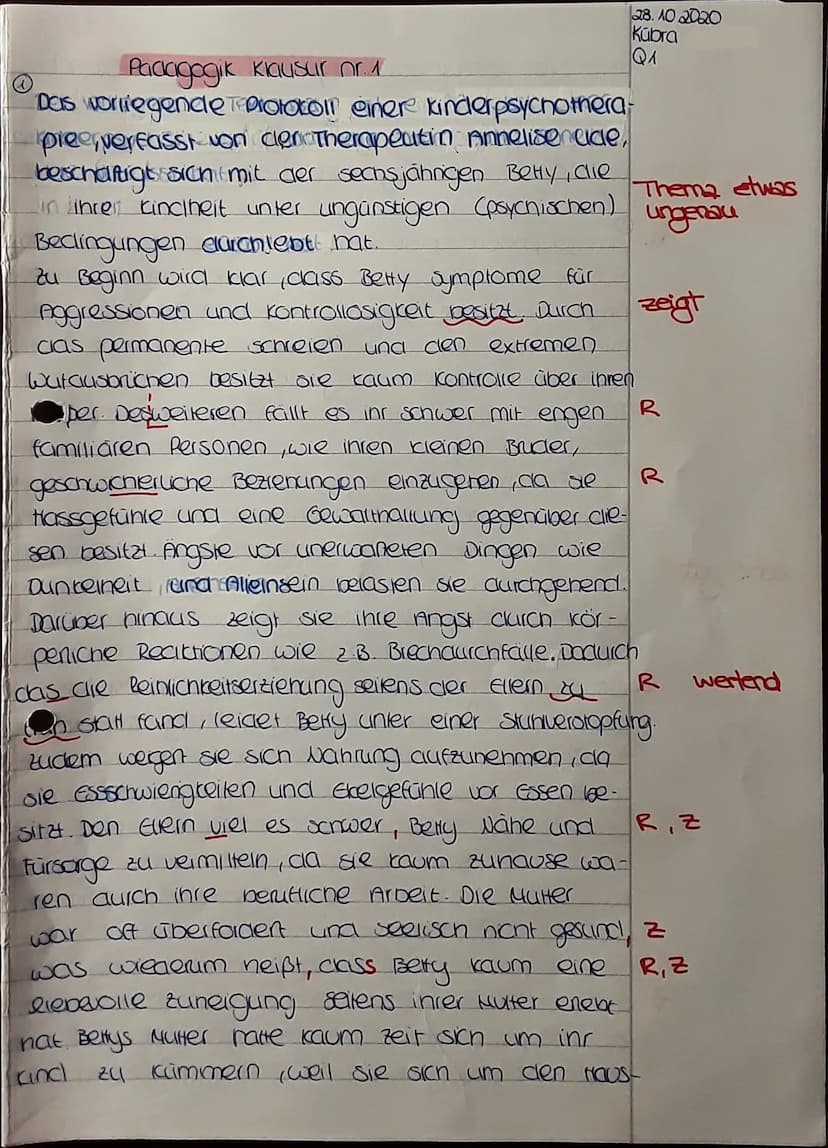 28.10.2020
Kübra
Q1
Pädagogik Klausur nr.1
①
Das vorliegende Protokoll einer Kinderpsychothera-
pie, verfasst von der Therapeutin Annelise Ude,
beschäftigt sich mit der sechsjährigen Betty, die
in ihrer Kindheit unter ungünstigen (psychischen)
Thema etwas
ungenau
Bedingungen durchlebt hat.
Zu Beginn wird klar, dass Betty Symptome für
Aggressionen und Kontrollosigkeit besitzt. Durch
zeigt
das permanente schreien und den extremen
Wutausbrüchen besitzt sie kaum Kontrolle über ihren
per. Desweiteren fällt es ihr schwer mit engen
R
familiären Personen, wie ihren kleinen Bruder,
geschwicherliche Beziehungen einzugehen, da sie
R
Hassgefühle und eine Gewalthaltung gegenüber die-
sen besitzt. Ängste vor unerwarteten Dingen wie
Dunkelheit und Alleinsein belasten sie durchgehend.
Darüber hinaus zeigt sie ihre Angst durch kör-
perliche Reaktionen wie z.B. Brechdurchfälle. Dadurch
das die Reinlichkeitserziehung seitens der Eltern zu
R wertend
statt fand, leidet Betty unter einer Stuhlverstopfung.
Zudem wegert sie sich Nahrung aufzunehmen, da
sie Essschwierigkeiten und Ekelgefühle vor Essen be-
sitzt. Den Eltern viel es schwer, Betty Nähe und
R, Z
Fürsorge zu vermitteln, da sie kaum zuhause wa-
ren durch ihre berufliche Arbeit. Die Mutter
war oft überfordert und seelisch nicht gesund,
Z
was wiederum heißt, dass Betty kaum eine
R, Z
liebevolle Zuneigung seitens ihrer Mutter erlebt
hat. Bettys Mutter hatte kaum Zeit sich um ihr
Kind zu kümmern, weil sie sich um den Haus-